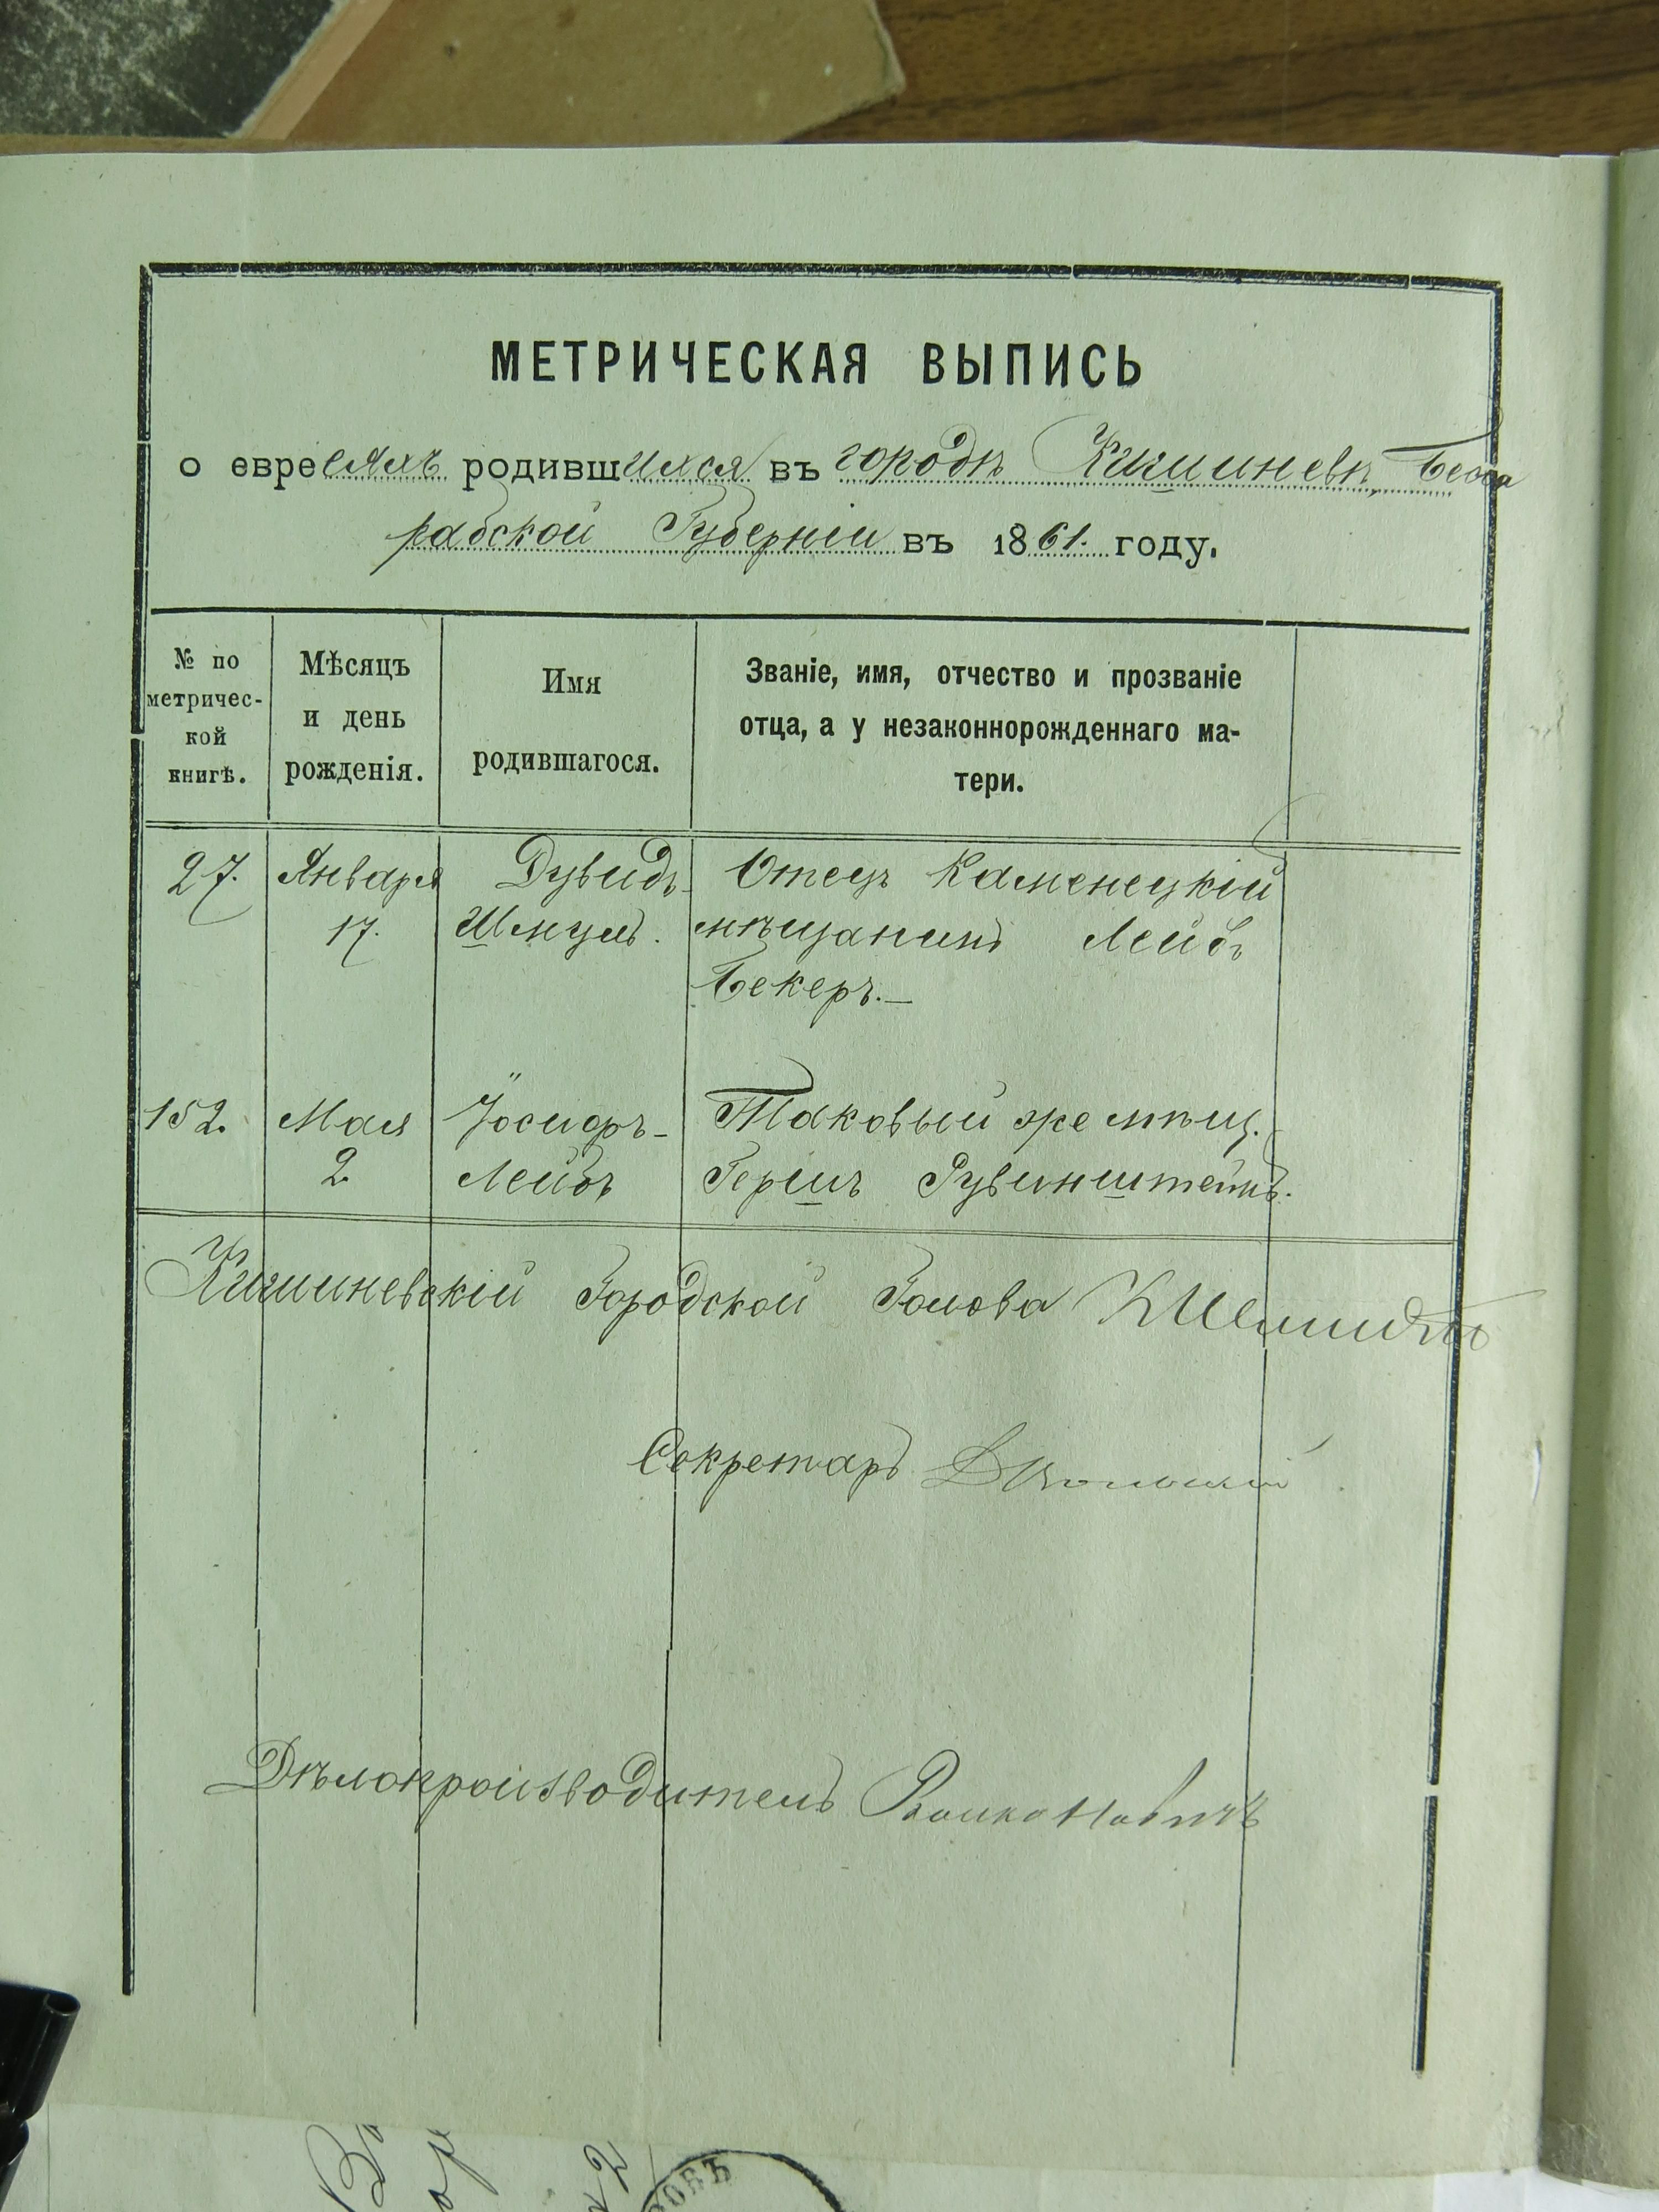 МЕТРИЧЕСКАЯ ВЫПИСЬ
о евреяхъ родившихся въ городѣ Кишиневѣ, Бесса
рабской Губерніи въ 1861. году.
№ по
метричес-
кой
книгѣ.
Мѣсяцъ
и день
рожденія.
Имя
родившагося.
Званіе, имя, отчество и прозваніе
отца, а у незаконнорожденнаго ма-
тери.
27. Января Дувидъ- Отецъ Каменецкій
17. Шмуль. мѣщанинъ Лейбъ
Бекеръ.—
152. Мая Іосифъ- Таковый же мѣщ.
2. Лейбъ Гершъ Рувинштейнъ.
Кишиневскій Городской Голова КШмидтъ
Секретарь
Дѣлопроизводитель
ОВЪ